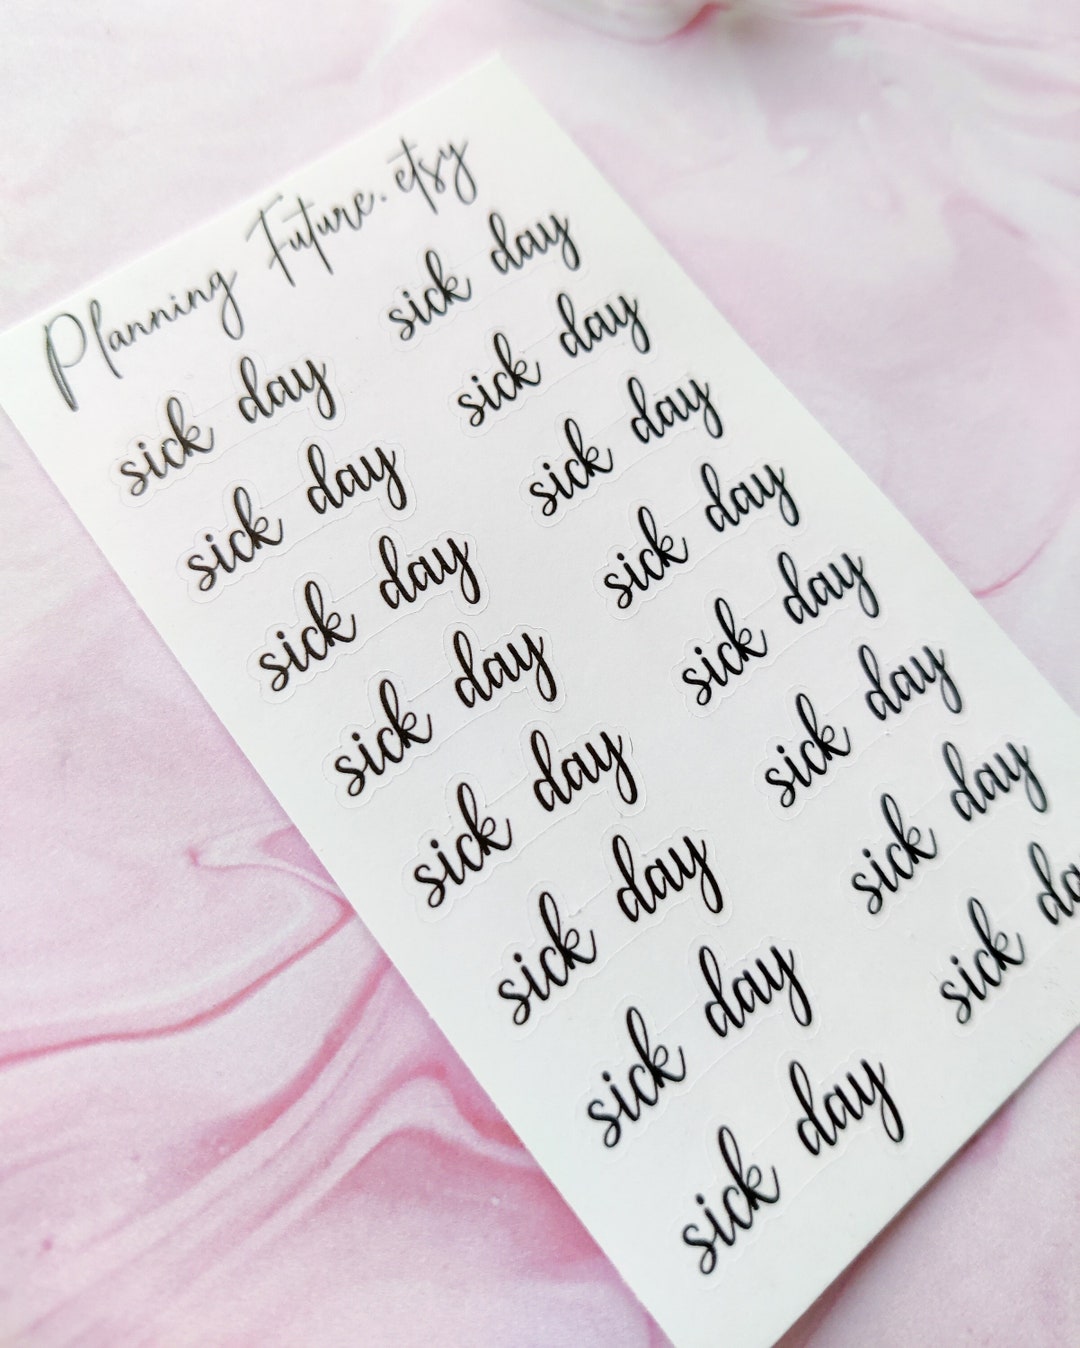 Planning Future.etsy
sick day sick day
sick day sick day
sick day sick day
sick day sick day
sick day sick day
sick day sick day
sick day sick day
sick day sick da